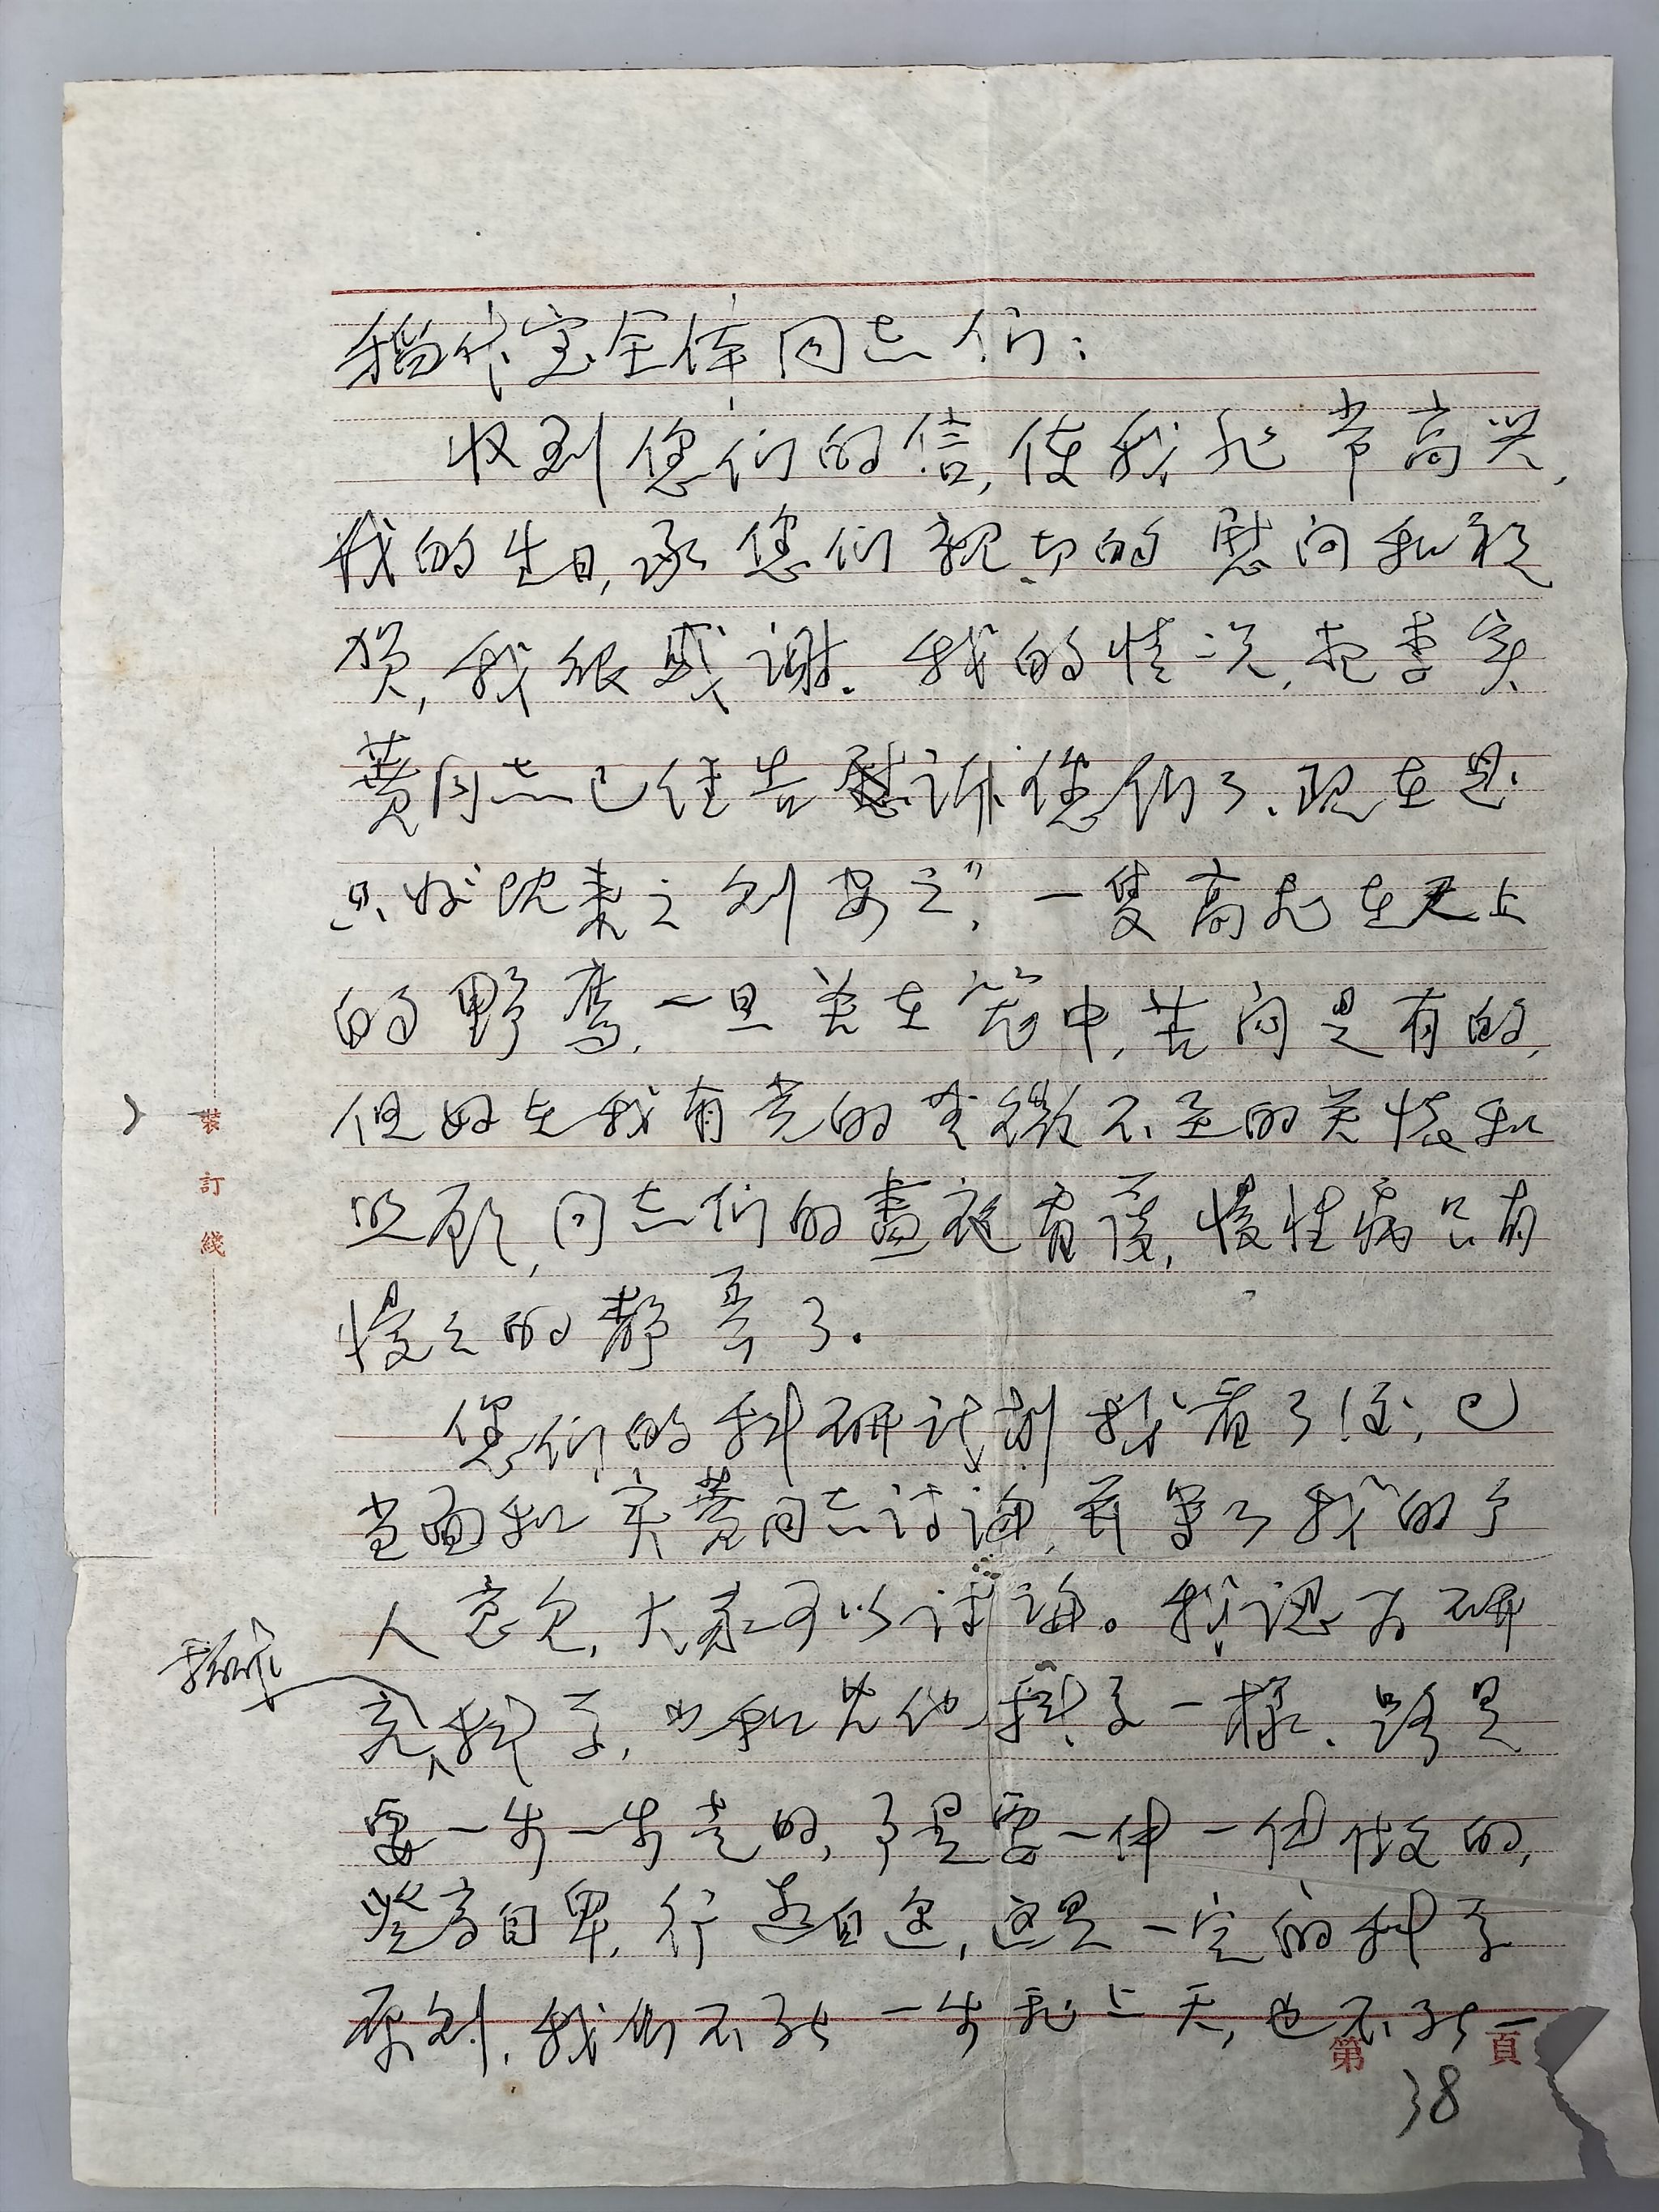 稻作室全体同志们：
收到您们的信，使我非常高兴，
我的生日，承您们亲切的慰问和祝
贺，我很感谢。我的情况，想李实
蕡同志已经告诉您们了、现在是
只好"既来之则安之"，一隻高飞在天上
的野鹰，一旦关在笼中，苦闷是有的，
但好在我有党的无微不至的关怀和
照顾，同志们的晝夜看護，慢性病只有
慢之的静养了。
您们的科研计划我看了後，已
当面和实蕡同志讨论，并草了我的个
人意见，大家可以讨论。我认为研
究科学，也和其他科学一様、路是
要一步一步走的，事是要一件一件做的，
登高自卑，行远自迩，这是一定的科学
原则，我们不能一步飞上天，也不能一
装訂綫
第 頁
38